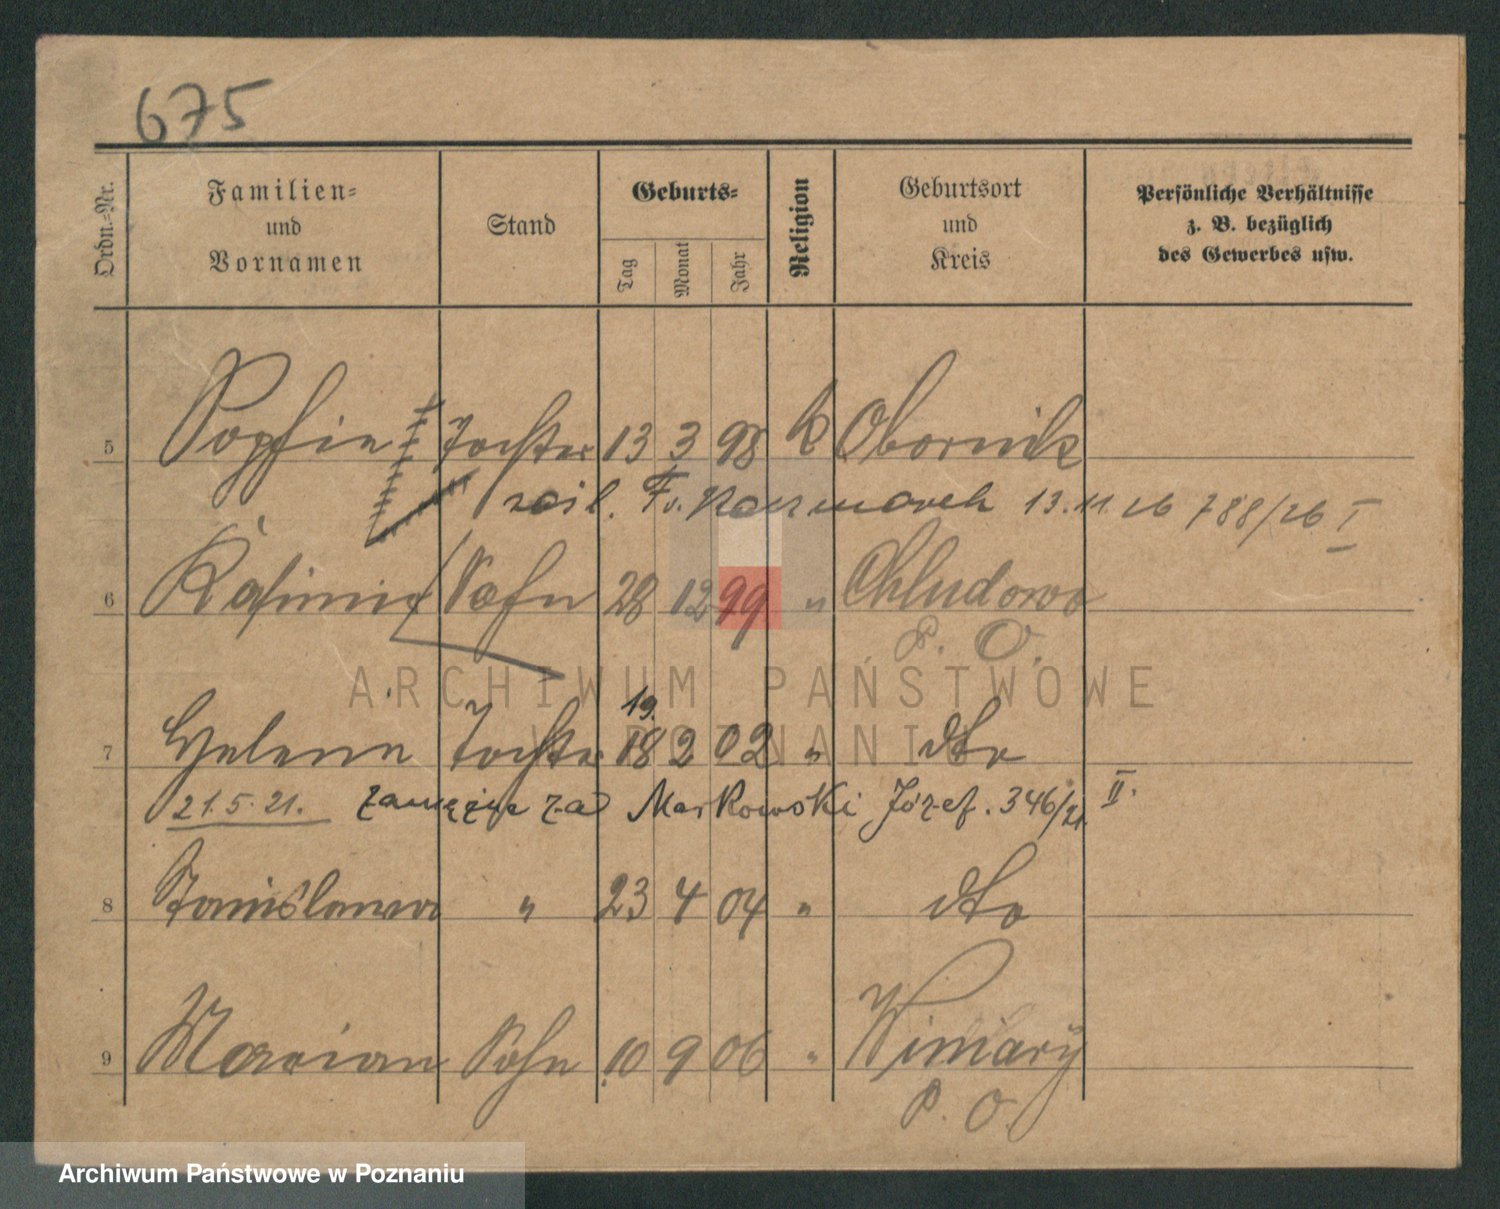 675
Ordn.-Nr. Familien- und Vornamen Stand Geburts- Tag Monat Jahr Religion Geburtsort und Kreis Persönliche Verhältnisse z. B. bezüglich des Gewerbes usw.
5 Sophie Tochter 13 3 98 k Obornik
Kaczmarek 13.11.26 788/26 I
6 Kasimir Sohn 28 12 99 " Chludowo
P. O.
19.
7 Helene Tochter 18 2 02 " dto
21.5.21. zamężna za Markowski Józef. 346/21. II.
8 Stanislawa " 23 4 04 " dto
9 Marian Sohn 10 9 06 "
P. O.
ARCHIWUM PAŃSTWOWE
W POZNANIU
Archiwum Państwowe w Poznaniu